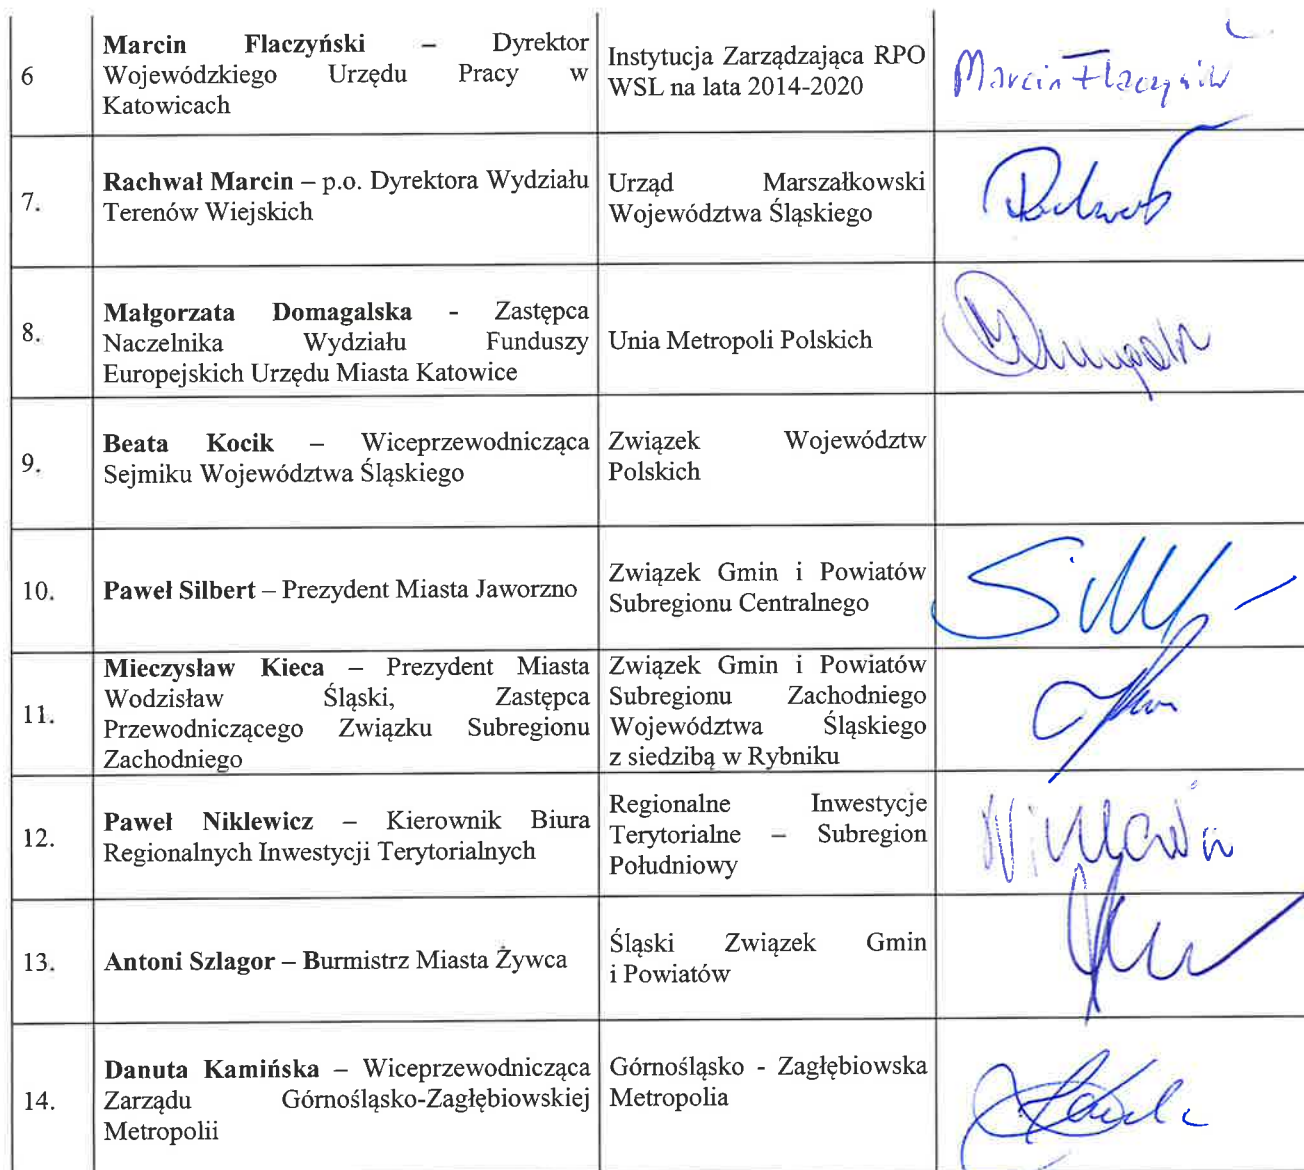 6
Marcin Flaczyński – Dyrektor
Wojewódzkiego Urzędu Pracy w
Katowicach
Instytucja Zarządzająca RPO
WSL na lata 2014-2020
Marcin Flaczyński
7.
Rachwał Marcin – p.o. Dyrektora Wydziału
Terenów Wiejskich
Urząd Marszałkowski
Województwa Śląskiego
8.
Małgorzata Domagalska - Zastępca
Naczelnika Wydziału Funduszy
Europejskich Urzędu Miasta Katowice
Unia Metropoli Polskich
9.
Beata Kocik – Wiceprzewodnicząca
Sejmiku Województwa Śląskiego
Związek Województw
Polskich
10.
Paweł Silbert – Prezydent Miasta Jaworzno
Związek Gmin i Powiatów
Subregionu Centralnego
11.
Mieczysław Kieca – Prezydent Miasta
Wodzisław Śląski, Zastępca
Przewodniczącego Związku Subregionu
Zachodniego
Związek Gmin i Powiatów
Subregionu Zachodniego
Województwa Śląskiego
z siedzibą w Rybniku
12.
Paweł Niklewicz – Kierownik Biura
Regionalnych Inwestycji Terytorialnych
Regionalne Inwestycje
Terytorialne – Subregion
Południowy
13.
Antoni Szlagor – Burmistrz Miasta Żywca
Śląski Związek Gmin
i Powiatów
14.
Danuta Kamińska – Wiceprzewodnicząca
Zarządu Górnośląsko-Zagłębiowskiej
Metropolii
Górnośląsko - Zagłębiowska
Metropolia